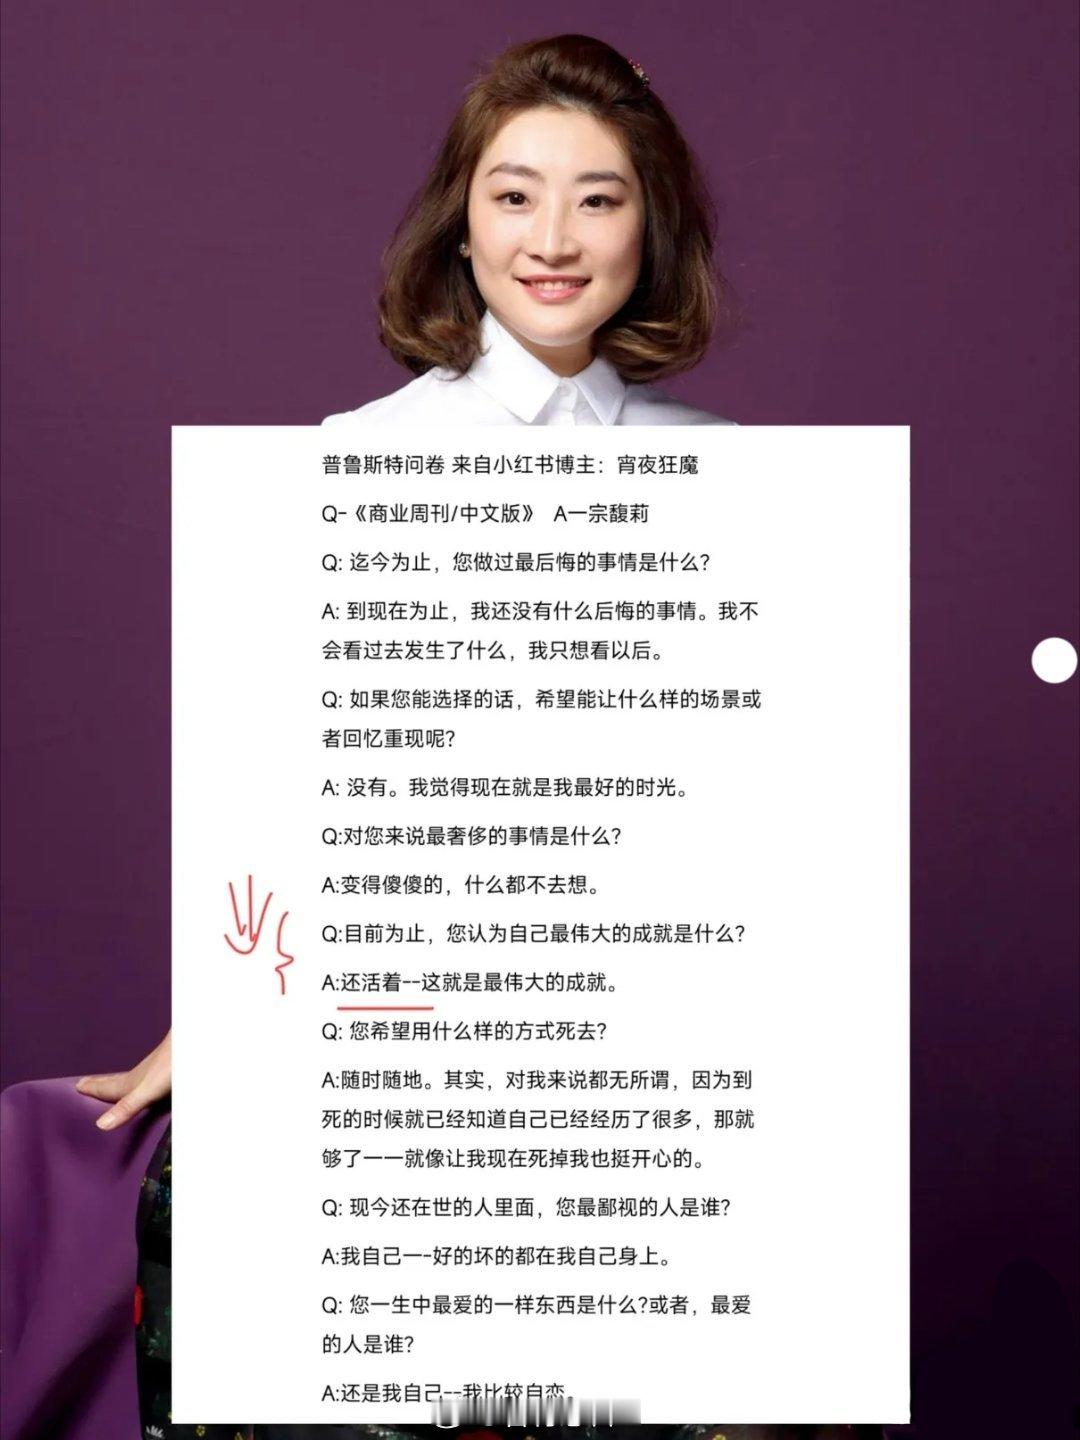 普鲁斯特问卷 来自小红书博主：宵夜狂魔
Q-《商业周刊/中文版》 A一宗馥莉
Q: 迄今为止，您做过最后悔的事情是什么?
A: 到现在为止，我还没有什么后悔的事情。我不
会看过去发生了什么，我只想看以后。
Q: 如果您能选择的话，希望能让什么样的场景或
者回忆重现呢?
A: 没有。我觉得现在就是我最好的时光。
Q:对您来说最奢侈的事情是什么?
A:变得傻傻的，什么都不去想。
Q:目前为止，您认为自己最伟大的成就是什么?
A:还活着--这就是最伟大的成就。
Q: 您希望用什么样的方式死去?
A:随时随地。其实，对我来说都无所谓，因为到
死的时候就已经知道自己已经经历了很多，那就
够了一一就像让我现在死掉我也挺开心的。
Q: 现今还在世的人里面，您最鄙视的人是谁?
A:我自己一-好的坏的都在我自己身上。
Q: 您一生中最爱的一样东西是什么?或者，最爱
的人是谁?
A:还是我自己--我比较自恋